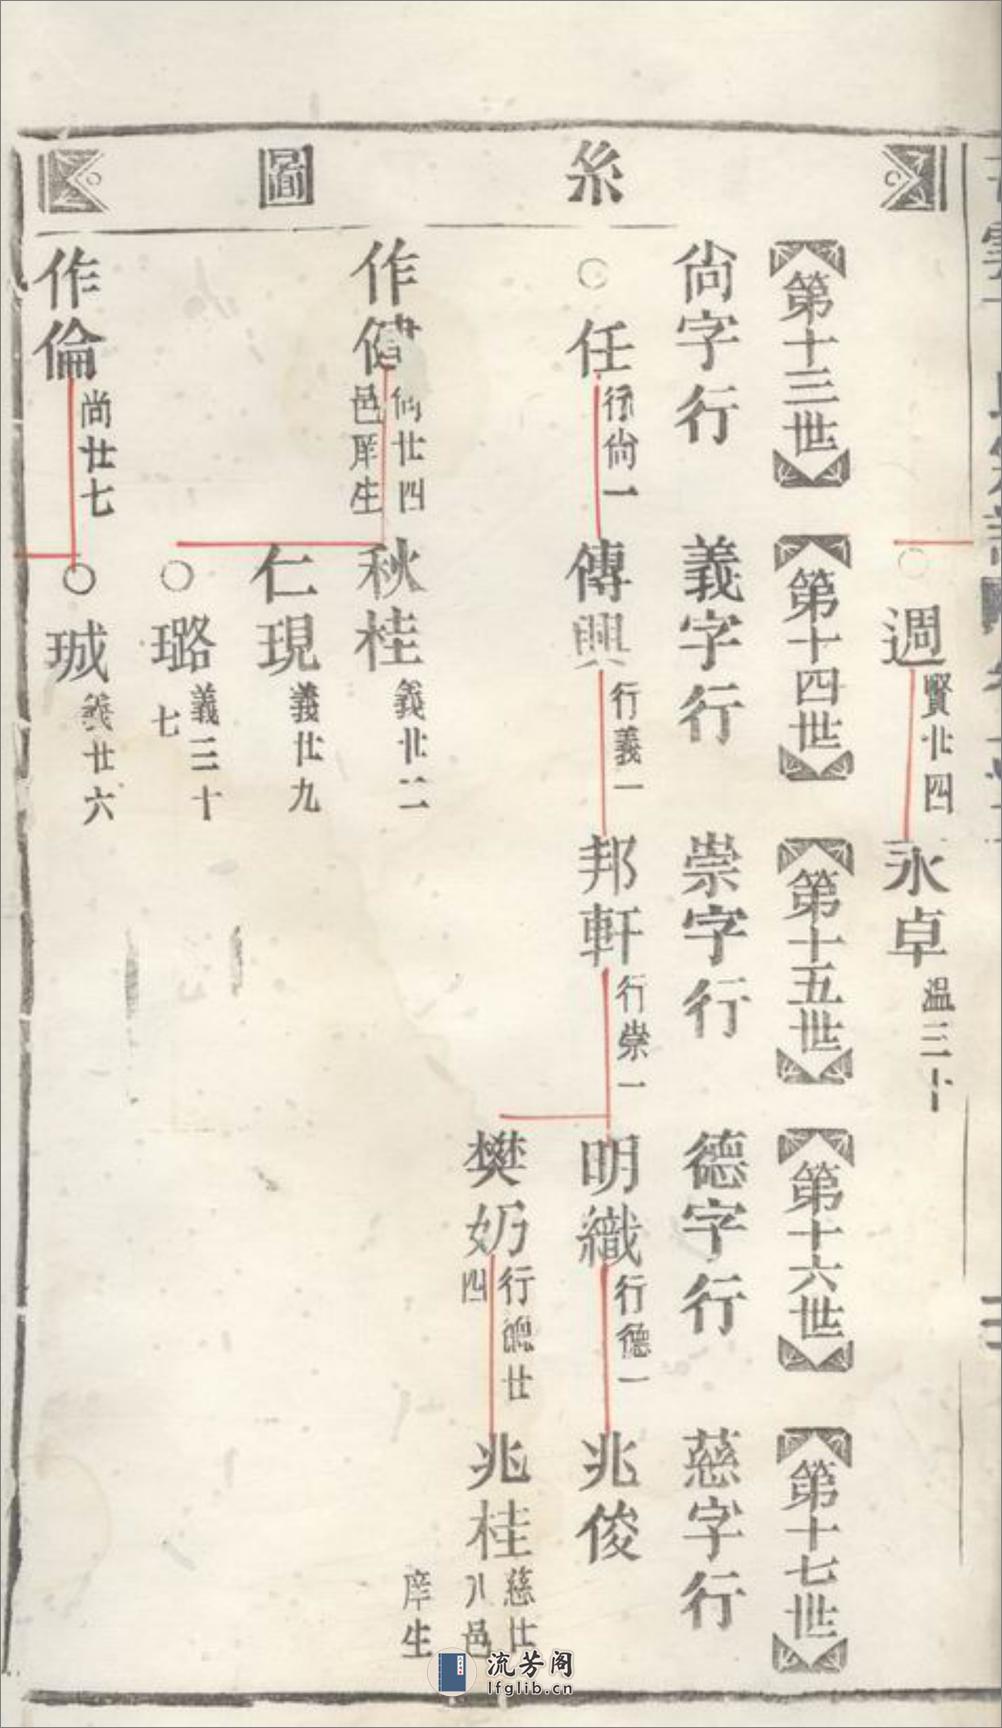 糸圖
週
賢廿四
永卓
溫三十
第十三世
第十四世
第十五世
第十六世
第十七世
尙字行
義字行
崇字行
德字行
慈字行
任
行尙一
傳興
行義一
邦軒
行崇一
明織
行德一
兆俊
樊奶
行德廿
四
兆桂
慈廿
八邑
庠生
作健
尙廿四
邑庠生
秋桂
義廿二
仁現
義廿九
璐
義三十
七
作倫
尚廿七
珹
義廿六
流芳阁
lfglib.cn